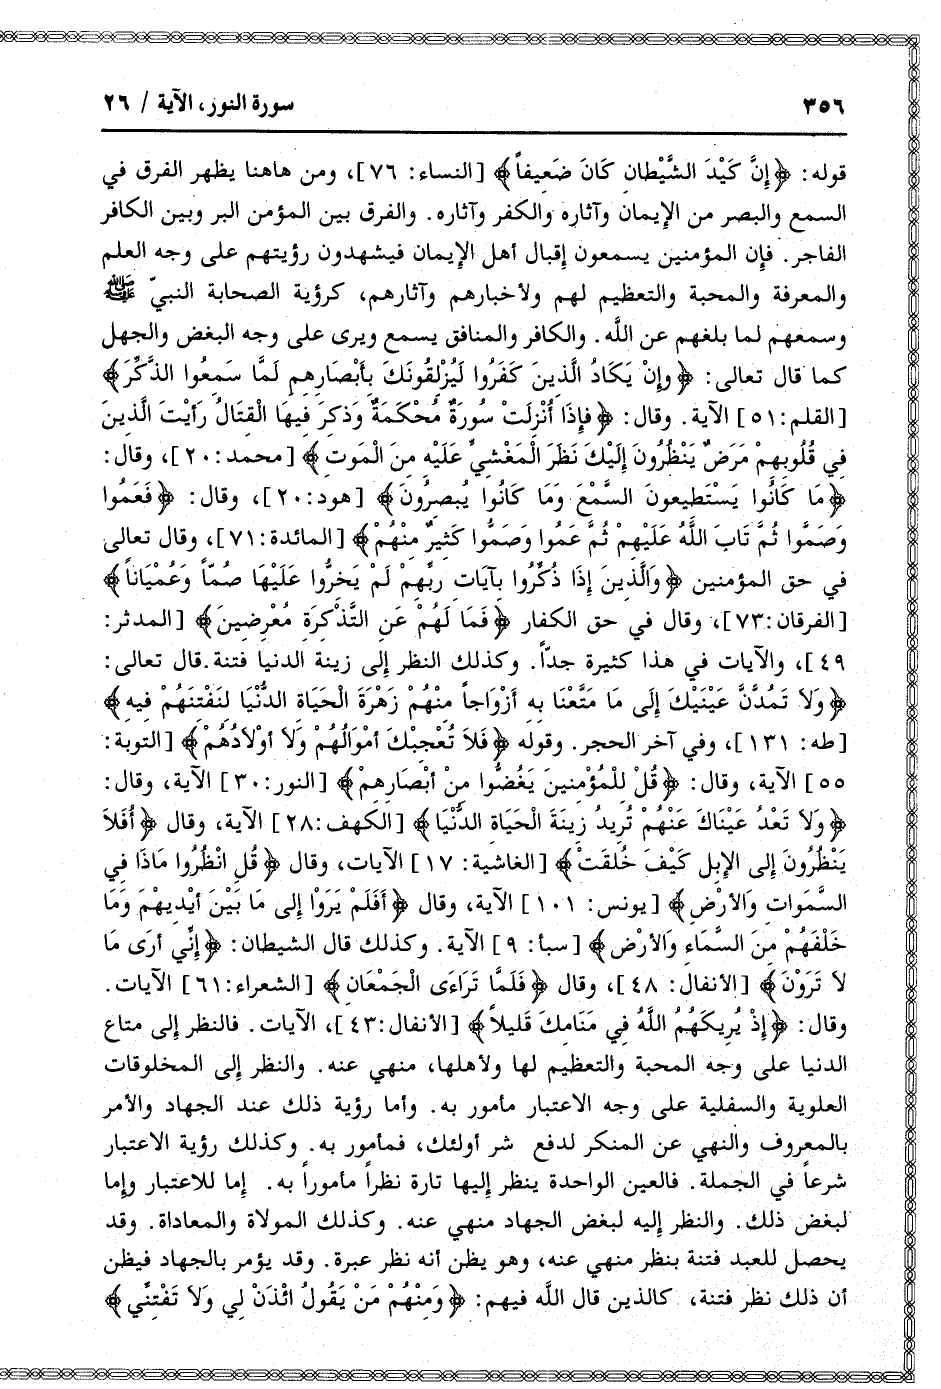 ٣٥٦ سورة النور، الآية / ٢٦
قوله: ﴿إِنَّ كَيْدَ الشَّيْطَانِ كَانَ ضَعِيفاً﴾ [النساء: ٧٦]، ومن هاهنا يظهر الفرق في
السمع والبصر من الإيمان وآثاره والكفر وآثاره. والفرق بين المؤمن البر وبين الكافر
الفاجر. فإن المؤمنين يسمعون إقبال أهل الإيمان فيشهدون رؤيتهم على وجه العلم
والمعرفة والمحبة والتعظيم لهم ولأخبارهم وآثارهم، كرؤية الصحابة النبيّ ﷺ
وسمعهم لما بلغهم عن الله. والكافر والمنافق يسمع ويرى على وجه البغض والجهل
كما قال تعالى: ﴿وإِنْ يَكَادُ الَّذِينَ كَفَرُوا لَيُزْلِقُونَكَ بِأَبْصَارِهِم لَمَّا سَمِعُوا الذِّكْرَ﴾
[القلم:٥١] الآية. وقال: ﴿فَإِذَا أُنْزِلَتْ سُورَةٌ مُحْكَمَةٌ وَذُكِرَ فِيهَا الْقِتَالُ رَأَيْتَ الَّذِينَ
فِي قُلُوبِهِمْ مَرَضٌ يَنْظُرُونَ إِلَيْكَ نَظَرَ الْمَغْشِيِّ عَلَيْهِ مِنَ الْمَوتِ﴾ [محمد:٢٠]، وقال:
﴿مَا كَانُوا يَسْتَطِيعونَ السَّمْعَ وَمَا كَانُوا يُبصِرُونَ﴾ [هود:٢٠]، وقال: ﴿فَعَمُوا
وَصَمُّوا ثُمَّ تَابَ اللَّهُ عَلَيْهِمْ ثُمَّ عَمُوا وَصَمُّوا كَثِيرٌ مِنْهُمْ﴾ [المائدة:٧١]، وقال تعالى
في حق المؤمنين ﴿وَالَّذِينَ إِذَا ذُكِّرُوا بِآيَاتِ رَبِّهِمْ لَمْ يَخِرُّوا عَلَيْهَا صُمّاً وَعُمْيَاناً﴾
[الفرقان:٧٣]، وقال في حق الكفار ﴿فَمَا لَهُمْ عَنِ التَّذْكِرَةِ مُعْرِضِينَ﴾ [المدثر:
٤٩]، والآيات في هذا كثيرة جدّاً. وكذلك النظر إلى زينة الدنيا فتنة.قال تعالى:
﴿وَلاَ تَمُدَّنَّ عَيْنَيْكَ إِلَى مَا مَتَّعْنَا بِهِ أَزْوَاجاً مِنْهُمْ زَهْرَةَ الْحَيَاةِ الدُّنْيَا لِنَفْتِنَهُمْ فِيهِ﴾
[طه: ١٣١]، وفي آخر الحجر. وقوله ﴿فَلاَ تُعْجِبْكَ أمْوَالُهُمْ وَلاَ أوْلاَدُهُمْ﴾ [التوبة:
٥٥] الآية، وقال: ﴿قُلْ لِلْمُؤْمِنينَ يَغُضُّوا مِنْ أَبْصَارِهِمْ﴾ [النور:٣٠] الآية، وقال:
﴿وَلاَ تَعْدُ عَيْنَاكَ عَنْهُمْ تُرِيدُ زِينَةَ الْحَيَاةِ الدُّنْيَا﴾ [الكهف:٢٨] الآية، وقال ﴿أَفَلاَ
يَنْظُرُونَ إِلى الإِبِلِ كَيْفَ خُلِقَتْ﴾ [الغاشية: ١٧] الآيات، وقال ﴿قُلِ انْظُرُوا مَاذَا فِي
السَّمَوَاتِ وَالأَرْضِ﴾ [يونس: ١٠١] الآية، وقال ﴿أَفَلَمْ يَرَوْا إِلى مَا بَيْنَ أيْدِيهِمْ وَمَا
خَلْفَهُمْ مِنَ السَّمَاءِ وَالأَرْضِ﴾ [سبأ: ٩] الآية. وكذلك قال الشيطان: ﴿إِنِّي أَرَى مَا
لاَ تَرَوْنَ﴾ [الأنفال: ٤٨]، وقال ﴿فَلَمَّا تَرَاءَى الْجَمْعَانِ﴾ [الشعراء:٦١] الآيات.
وقال: ﴿إِذْ يُرِيكَهُمُ اللَّهُ فِي مَنَامِكَ قَلِيلاً﴾ [الأنفال:٤٣]، الآيات. فالنظر إلى متاع
الدنيا على وجه المحبة والتعظيم لها ولأهلها، منهي عنه. والنظر إلى المخلوقات
العلوية والسفلية على وجه الاعتبار مأمور به. وأما رؤية ذلك عند الجهاد والأمر
بالمعروف والنهي عن المنكر لدفع شر أولئك، فمأمور به. وكذلك رؤية الاعتبار
شرعاً في الجملة. فالعين الواحدة ينظر إليها تارة نظراً مأموراً به. إما للاعتبار وإما
لبغض ذلك. والنظر إليه لبغض الجهاد منهي عنه. وكذلك المولاة والمعاداة. وقد
يحصل للعبد فتنة بنظر منهي عنه، وهو يظن أنه نظر عبرة. وقد يؤمر بالجهاد فيظن
أن ذلك نظر فتنة، كالذين قال الله فيهم: ﴿وَمِنْهُمْ مَنْ يَقُولُ ائْذَنْ لِي وَلاَ تَفْتِنِّي﴾